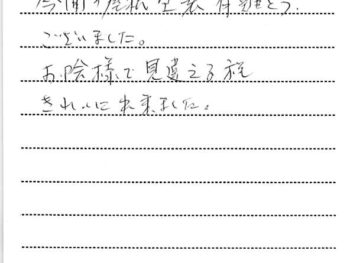 屋根塗装有難とう
ございました。
お陰様で見違える程
きれいに出来ました。